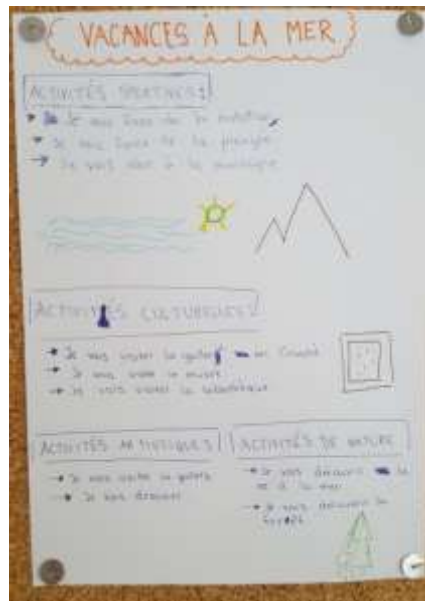 VACANCES À LA MER
ACTIVITÉS SPORTIVES:
Je vais faire de la natation
Je vais faire de la plongée
Je vais aller à la montagne
ACTIVITÉS CULTURELLES:
Je vais visiter la galerie en
Je vais visiter le musée
Je vais visiter la
ACTIVITÉS ARTISTIQUES
Je vais visiter la galerie
Je vais dessiner
ACTIVITÉS DE NATURE
Je vais découvrir la
à la mer
Je vais découvrir la